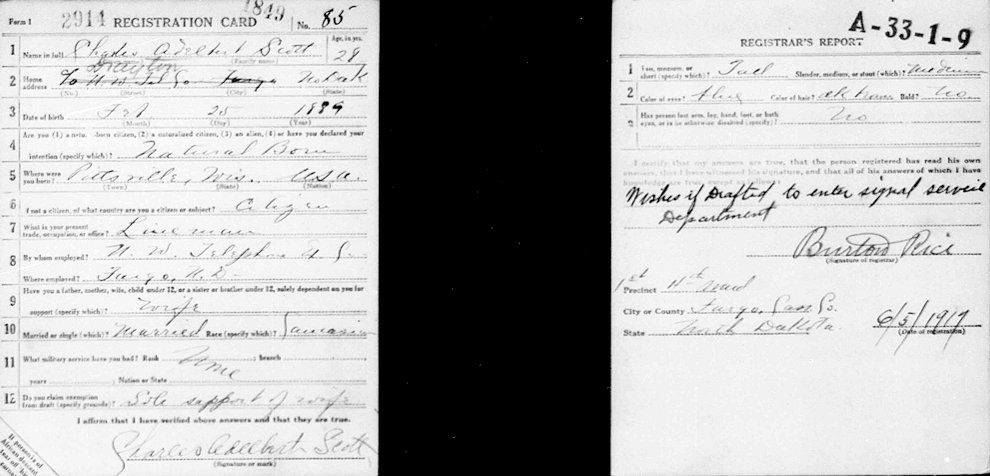 Form 1 2914 REGISTRATION CARD 1849 No. 85
1 Name in full Charles Adelbert Scott Age, in yrs. 29
(Family name)
Drayton
2 Home address To N. W. Tel Co Fargo No Dak
(No.) (Street) (City) (State)
3 Date of birth Feb 25 1889
(Month) (Day) (Year)
Are you (1) a natural born citizen, (2) a naturalized citizen, (3) an alien, (4) or have you declared your
4 intention (specify which)? Natural Born
5 Where were you born? Pittsville, Wis. U.S.A.
(Town) (State) (Nation)
6 If not a citizen, of what country are you a citizen or subject? Citizen
7 What is your present trade, occupation, or office? Lineman
8 By whom employed? N. W. Telephone Co
Where employed? Fargo, N. D.
Have you a father, mother, wife, child under 12, or a sister or brother under 12, solely dependent on you for
9 support (specify which)? Wife
10 Married or single (which)? Married Race (specify which)? Caucasian
11 What military service have you had? Rank None ; branch
years ; Nation or State
12 Do you claim exemption from draft (specify grounds)? Sole support of wife
I affirm that I have verified above answers and that they are true.
Charles Adelbert Scott
(Signature or mark)
If person is of African descent
A-33-1-9
REGISTRAR'S REPORT
1 Tall, medium, or short (specify which)? Tall Slender, medium, or stout (which)? Medium
2 Color of eyes? Blue Color of hair? dk brown Bald? No
Has person lost arm, leg, hand, foot, or both
3 eyes, or is he otherwise disabled (specify)? No
I certify that my answers are true, that the person registered has read his own
answers, that I have witnessed his signature, and that all of his answers of which I have
knowledge are true
Wishes if Drafted to enter signal service
Department
Burton Rice
(Signature of registrar)
Precinct 1st 4th Ward
City or County Fargo, Cass Co.
State North Dakota. 6/5/1917
(Date of registration)